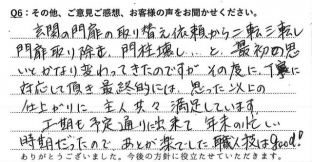 Q6：その他、ご意見ご感想、お客様の声をお聞かせください。
玄関の門扉の取り替え依頼から二転三転し
門扉取り除き、門柱壊し…と、最初の思
いとかなり変わってきたのですがその度に、丁寧に
対応して頂き最終的には、思った以上の
仕上がりに主人共々満足しています。
工期も予定通りに出来て年末の忙しい
時期だったので、あとが楽でした 職人技はgood!
ありがとうございました。今後の方針に役立たせていただきます。